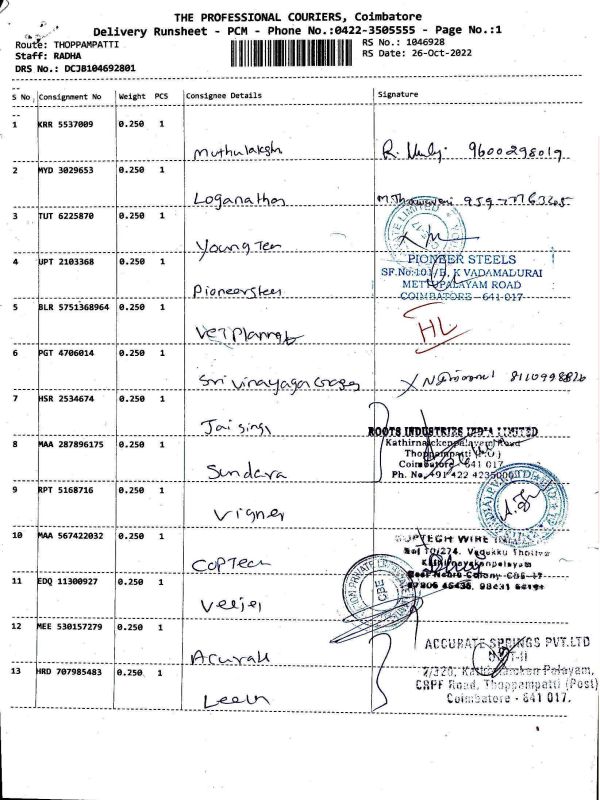 THE PROFESSIONAL COURIERS, Coimbatore
Delivery Runsheet - PCM - Phone No.:0422-3505555 - Page No.:1
Route: THOPPAMPATTI RS No.: 1046928
Staff: RADHA RS Date: 26-Oct-2022
DRS No.: DCJB104692801
S No Consignment No Weight PCS Consignee Details Signature
1 KRR 5537009 0.250 1
Muthulaksh R. 9600298019
2 MYD 3029653 0.250 1
Loganathan
3 TUT 6225870 0.250 1
Young Ten
4 UPT 2103368 0.250 1 PIONEER STEELS
SF.No:101/B, K VADAMADURAI
Pioneer steel METTUPALAYAM ROAD
COIMBATORE - 641 017
5 BLR 5751368964 0.250 1
HL
6 PGT 4706014 0.250 1
Sri Vinayaga
7 HSR 2534674 0.250 1
Jai singh ROOTS INDUSTRIES INDIA LIMITED
8 MAA 287896175 0.250 1 Kathirnaickenpalayam Road
Thoppampatti (P.O)
Coimbatore - 641 017
Sundara Ph. No. +91 422 4235000
9 RPT 5168716 0.250 1
Vigner
10 MAA 567422032 0.250 1 COPTECH WIRE
CopTech
11 EDQ 11300927 0.250 1 CBE
Veejei
12 MEE 530157279 0.250 1 ACCURATE SPRINGS PVT.LTD
Acurate UNIT-II
13 HRD 707985483 0.250 1 2/320, Kathirnaicken Palayam,
CRPF Road, Thoppampatti (Post)
Coimbatore - 641 017.